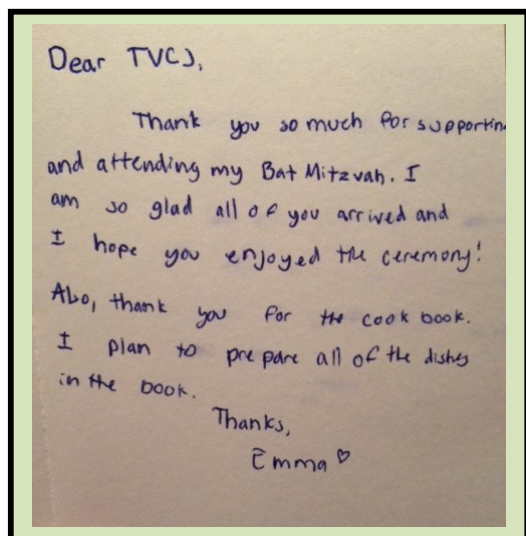 Dear TVCJ,
Thank you so much for supportin
and attending my Bat Mitzvah. I
am so glad all of you arrived and
I hope you enjoyed the ceremony!
Also, thank you for the cook book.
I plan to prepare all of the dishes
in the book.
Thanks,
Emma ♡